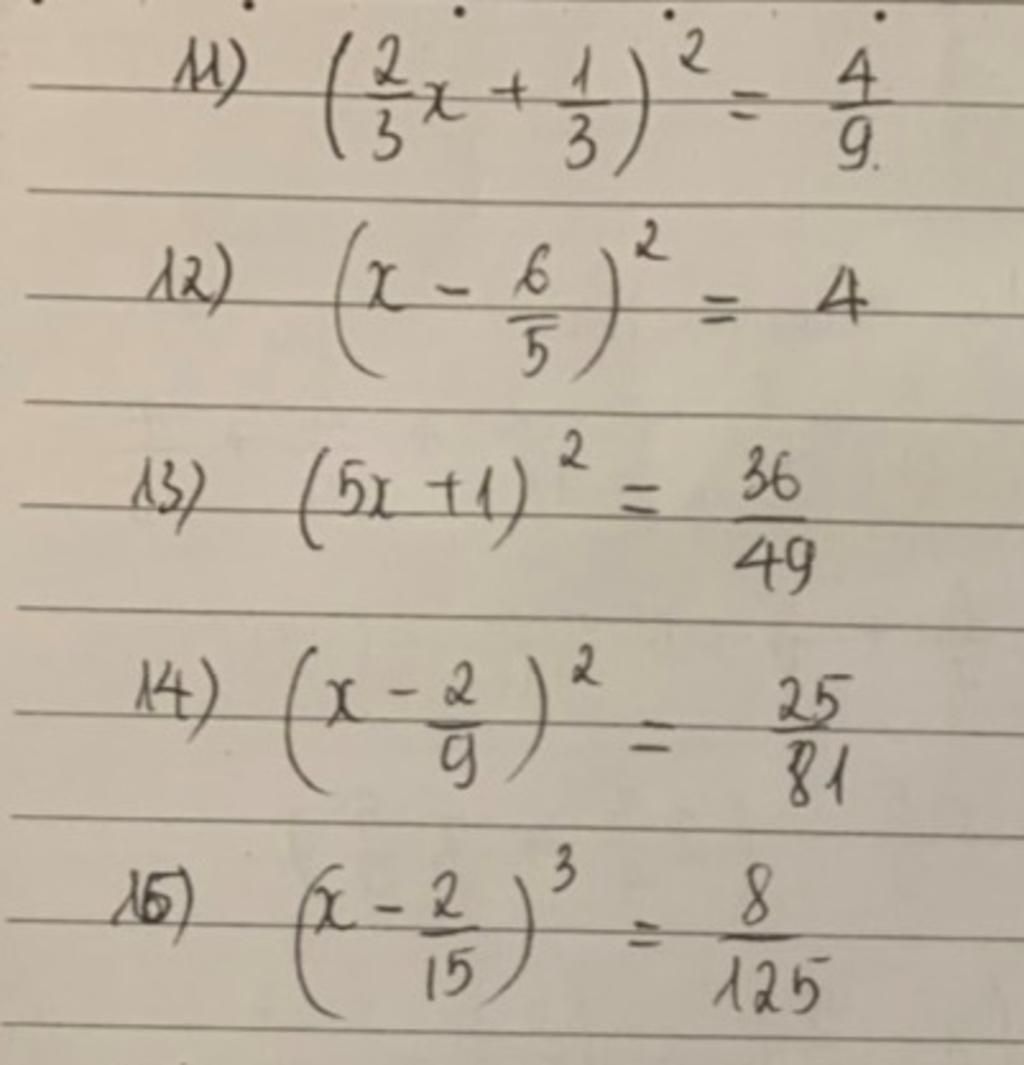 11) (2/3 x + 1/3)² = 4/9
12) (x - 6/5)² = 4
13) (5x + 1)² = 36/49
14) (x - 2/9)² = 25/81
15) (x - 2/15)³ = 8/125